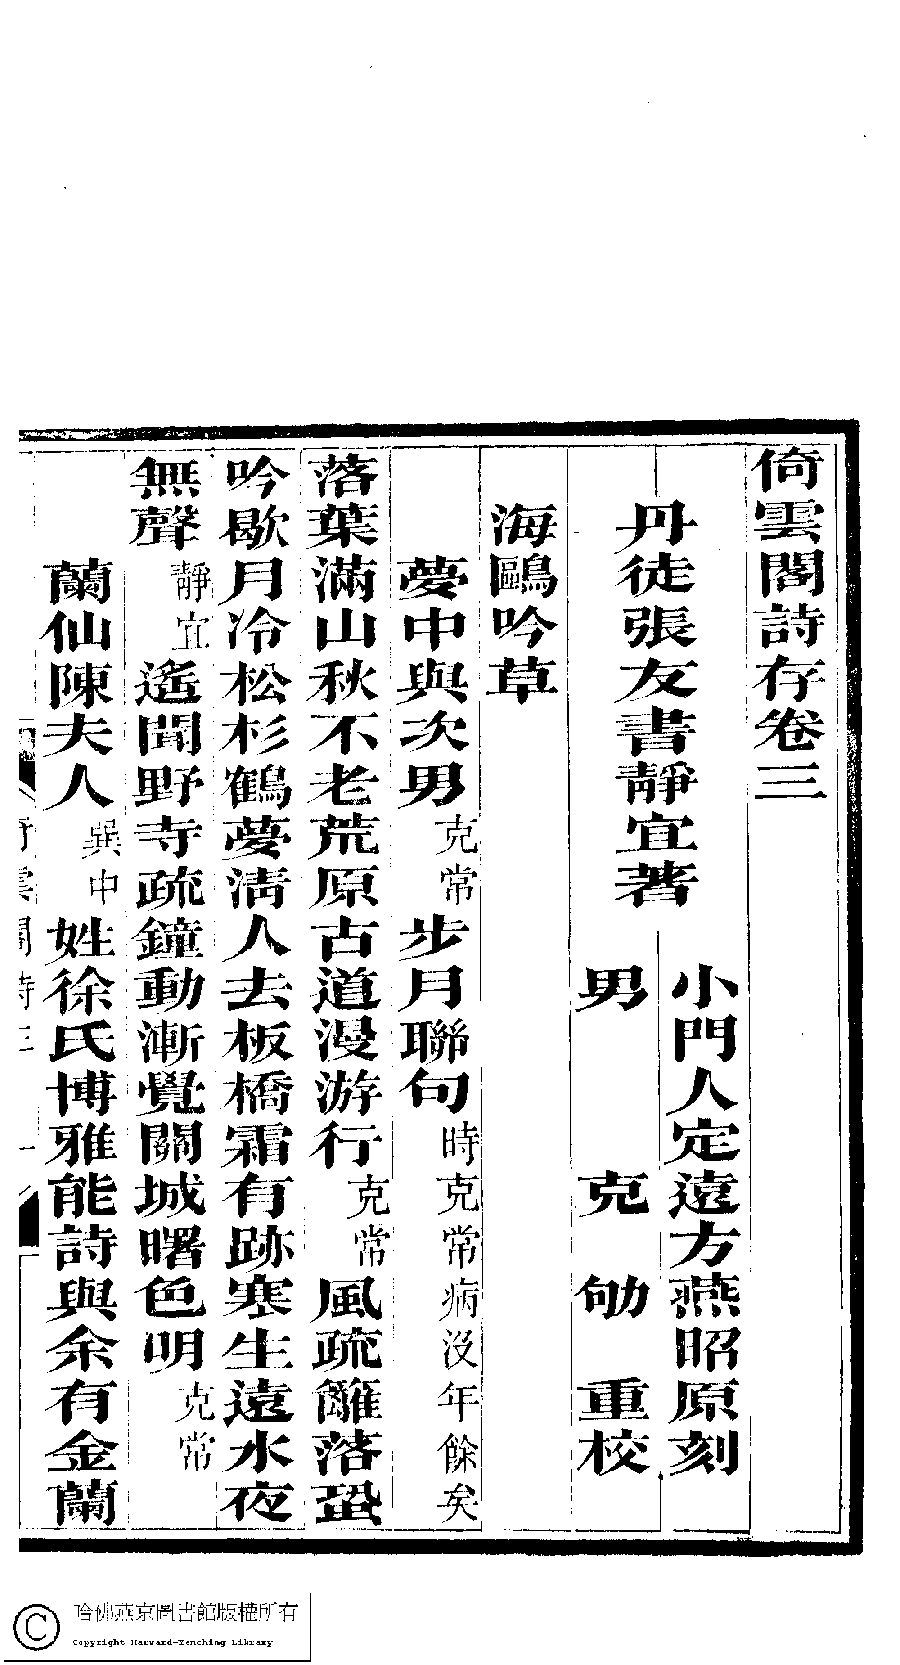 倚雲閣詩存卷三
小門人定遠方燕昭原刻
丹徒張友書靜宜著
男克劬重校
海鷗吟草
夢中與次男克常步月聯句時克常病沒年餘矣
落葉滿山秋不老荒原古道漫游行克常風疏籬落蛩
吟歇月冷松杉鶴夢淸人去板橋霜有跡寒生遠水夜
無聲靜宜遙聞野寺疏鐘動漸覺關城曙色明克常
蘭仙陳夫人巽中姓徐氏博雅能詩與余有金蘭
哈佛燕京圖書館版權所有
Copyright Harvard-Yenching Library